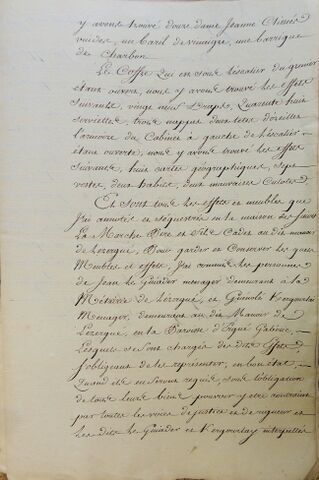 y avons trouvé douze dame Jeanne Clissée
vuides, un baril de vinaigre, une barrique
de Charbon.
Le Coffre qui est sous l'escalier du grenier
etant ouvert, nous y avons trouvé les effets
Suivants, vingt neuf Draps, Quarante huit
serviettes, trois nappes, deux tetes d'oreilles
l'armoire du Cabinet à gauche de l'escalier
etant ouverte, nous y avons trouvé les effets
Suivants, huit cartes géographiques, sept
vestes, deux habits, deux mauvaises Culotes,
Et sont tous les effets et meubles que
J'ai annotés et séquestrés en la maison des sieurs
La Marche Pere et Fils Cadet au dit manoir
de Lezergué, Pour garder et Conserver les quels
Meubles et effets, J'ai commis les personnes
de Jean Le Guiader menager demeurant à la
Métairie de Lezergué, et Guénolé Kergourlay
Menager, demeurant au dit Manoir de
Lezergué, en la Paroisse d'Ergué Gabéric,
Lesquels se sont chargés des dits Effets,
s'obligeant de les représenter, en bon état,
Quand ils en seront requis, sous l'obligation
de tous leurs biens pouvoir y etre contraints
par toutes les voies de justice et de rigueur et
les dits Le Guiader et Kergourlay interpellés